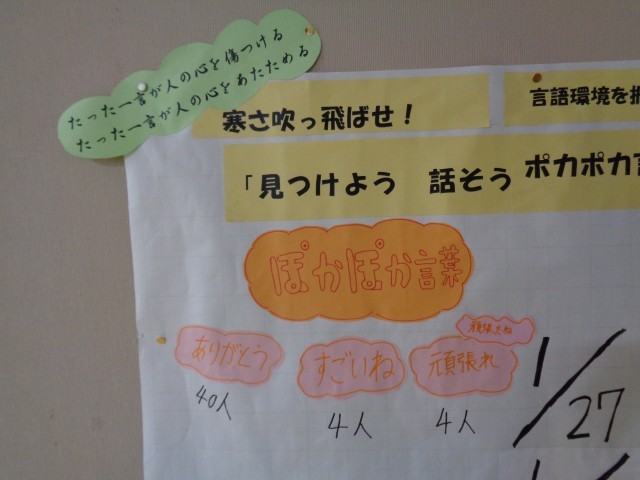 たった一言が人の心を傷つける
たった一言が人の心をあたためる
寒さ吹っ飛ばせ！
言語環境を
「見つけよう　話そう　ポカポカ言
ぽかぽか言葉
頑張ったね
ありがとう
すごいね
頑張れ
40人
4人
4人
1/27